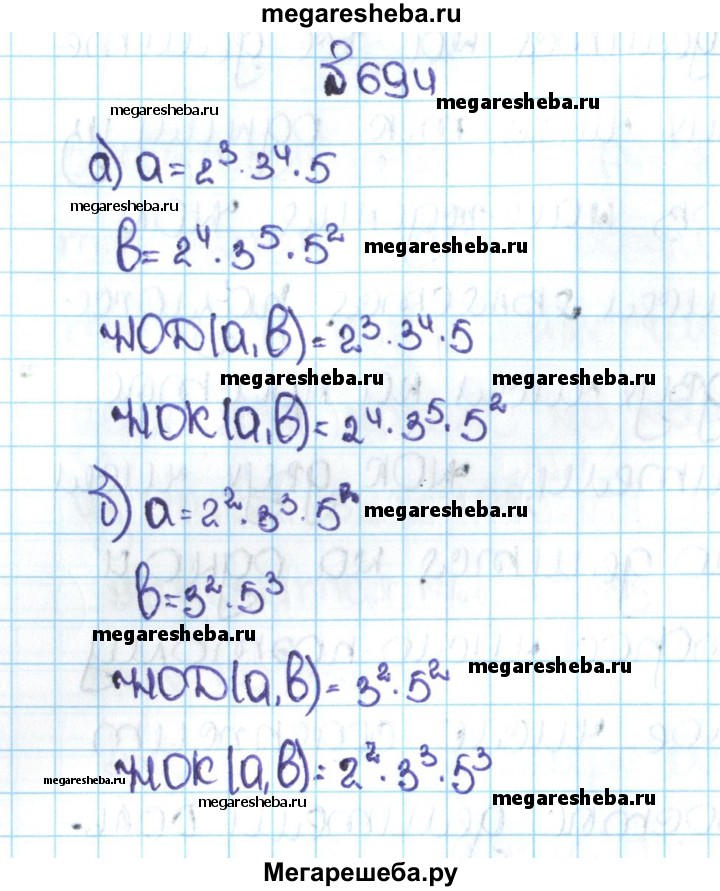 megaresheba.ru
§ 694
megaresheba.ru megaresheba.ru
а) a = 2³ · 3⁴ · 5
megaresheba.ru
в = 2⁴ · 3⁵ · 5² megaresheba.ru
НОД(а, в) = 2³ · 3⁴ · 5
megaresheba.ru megaresheba.ru
НОК(а, в) = 2⁴ · 3⁵ · 5²
б) а = 2² · 3³ · 5² megaresheba.ru
в = 3² · 5³
megaresheba.ru
НОД(а, в) = 3² · 5² megaresheba.ru
НОК(а, в) = 2² · 3³ · 5³
megaresheba.ru megaresheba.ru megaresheba.ru
Мегарешеба.ру